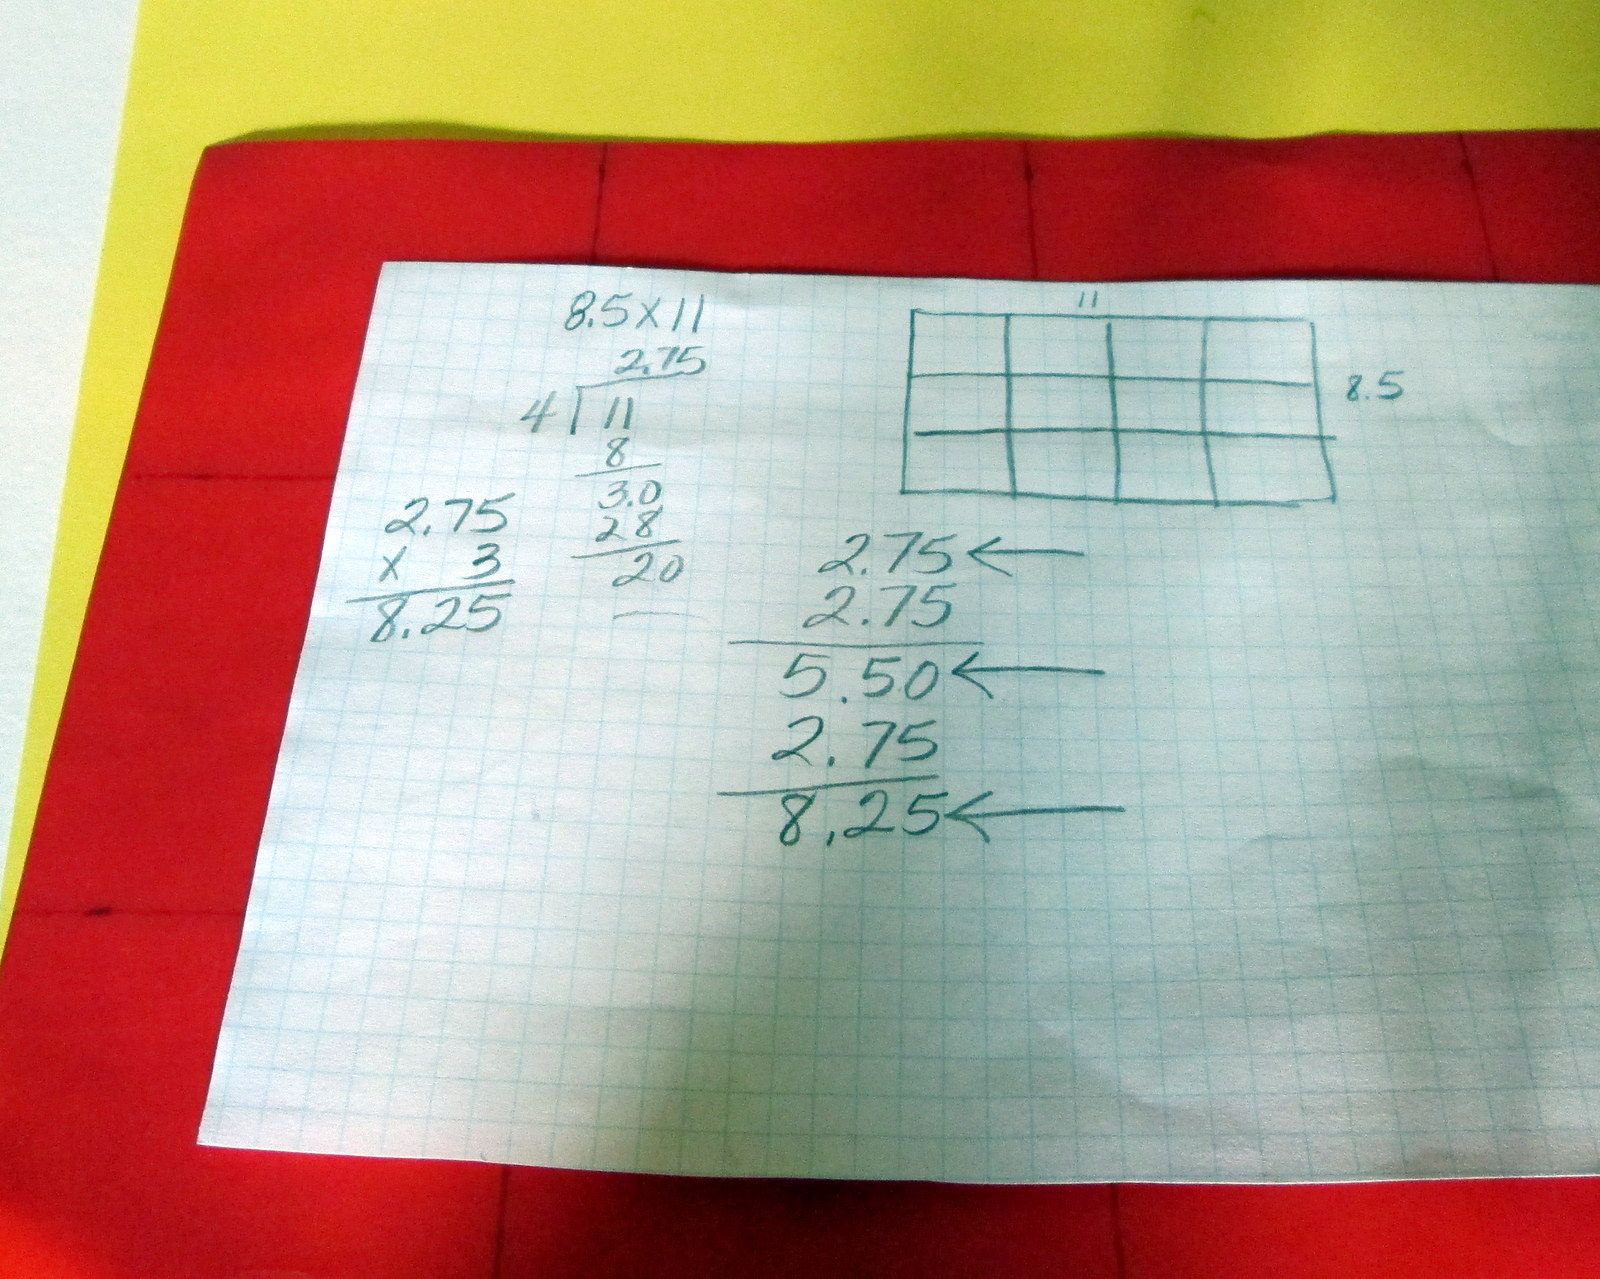 8.5x11
2.75
4 11
8
3.0
28
20
2.75
x 3
8.25
11
8.5
2.75
2.75
5.50
2.75
8.25